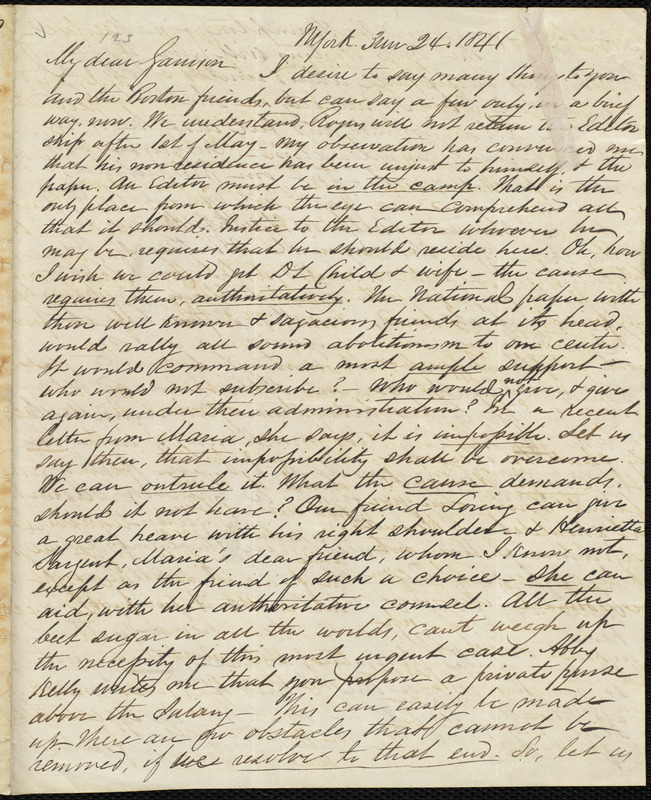 123
N York. Jan 24. 1841
My dear Garrison I desire to say many things to you
and the Boston friends, but can say a few only, in a brief
way, now. We understand, Rogers will not retain the Editor
ship after 1st of May – My observation has convinced me
that his non residence has been unjust to himself, & the
paper. An Editor must be in the camp. That is the
only place from which the eye can comprehend all
that it should. Justice to the Editor whoever he
may be, requires that he should reside here. Oh, how
I wish we could get D L Child & wife – the cause
requires them, authoritatively. The National paper with
those well known & sagacious friends at its head,
would rally all sound abolitionism to one center.
It would command a most ample support –
who would not subscribe? – Who would not give, & give
again, under their administration? In a recent
letter from Maria, she says, it is impossible. Let us
say then, that impossibility shall be overcome.
We can outrule it. What the cause demands,
should it not have? Our friend Loring can give
a great heave with his right shoulder & Henrietta
Sargent, Maria's dear friend, whom I know not,
except as the friend of such a choice – she can
aid, with her authoritative counsel. All the
beet sugar in all the worlds, cant weigh up
the necessity of this most urgent case. Abby
Kelly writes me that you propose a private purse
above the Salary – This can easily be made
up – There are few obstacles that cannot be
removed, if we resolve to that end. So, let us